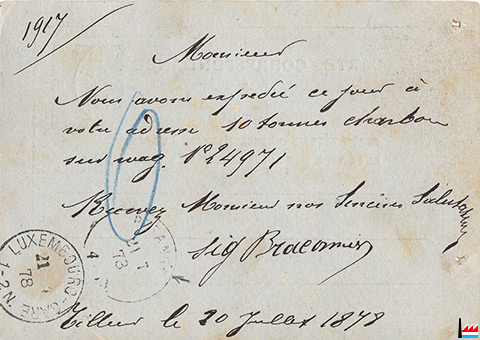 1917
Monsieur
Nous avons expedié ce jour à
votre adresse 10 tonnes charbon
sur wag. N° 24971
Recevez Monsieur nos Sincères Salutations
Sig Braconnier
LUXEMBOURG-GARE
21
78
1-2 N.
21 7
73
4
Tilleur le 20 Juillet 1878